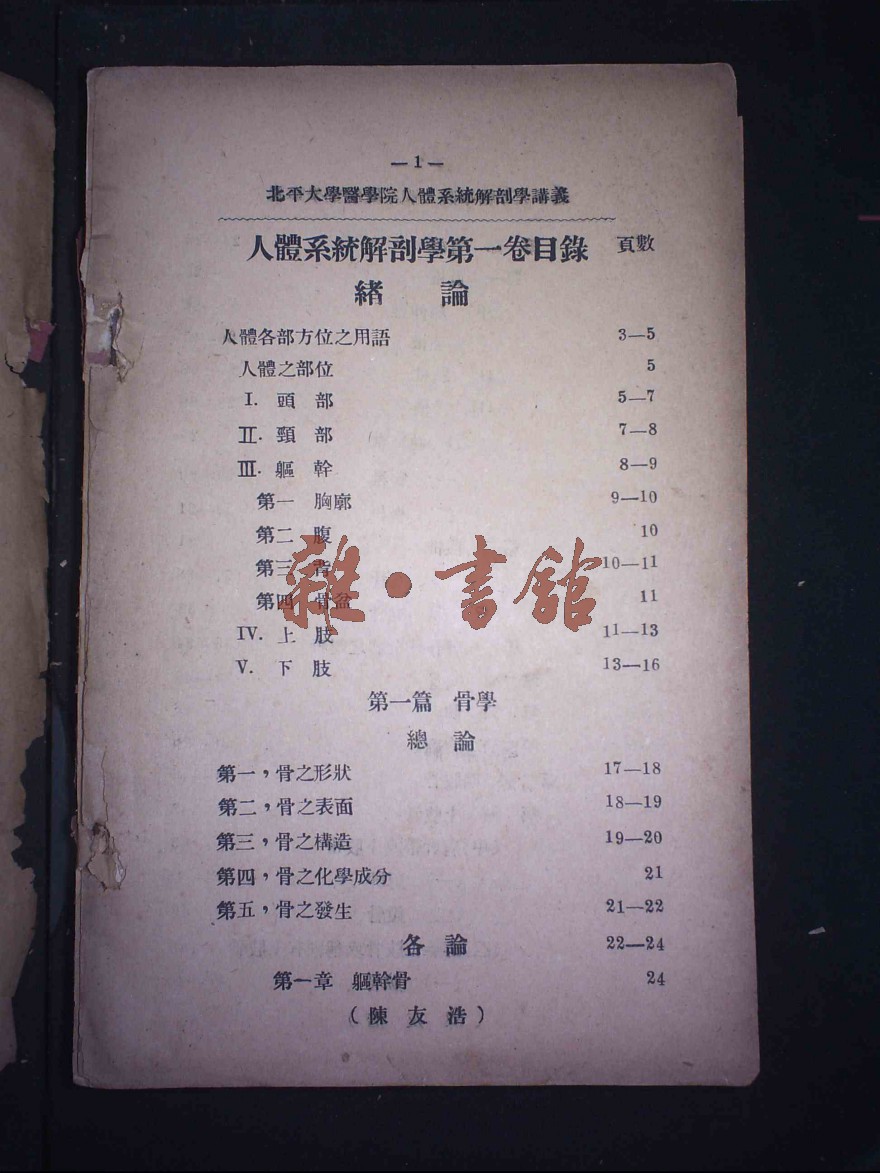 —1—
北平大學醫學院人體系統解剖學講義
人體系統解剖學第一卷目錄 頁數
緒 論
人體各部方位之用語 3—5
人體之部位 5
I. 頭 部 5—7
II. 頸 部 7—8
III. 軀 幹 8—9
第一 胸廓 9—10
第二 腹 10
第三 背 10—11
第四 骨盆 11
IV. 上 肢 11—13
V. 下 肢 13—16
第一篇 骨學
總 論
第一,骨之形狀 17—18
第二,骨之表面 18—19
第三,骨之構造 19—20
第四,骨之化學成分 21
第五,骨之發生 21—22
各 論 22—24
第一章 軀幹骨 24
(陳 友 浩)
雜·書館